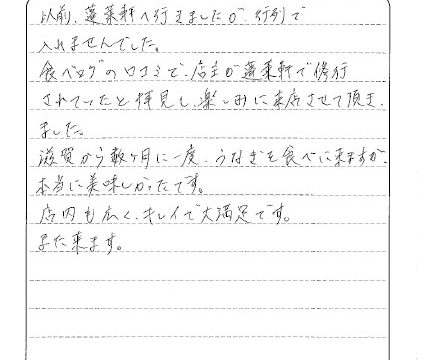 以前、蓬莱軒へ行きましたが、行列で
入れませんでした。
食べログの口コミで、店主が蓬莱軒で修行
されていたと拝見し、楽しみに来店させて頂き
ました。
滋賀から数ヶ月に一度、うなぎを食べに来ますが、
本当に美味しかったです。
店内も広く、キレイで大満足です。
また来ます。